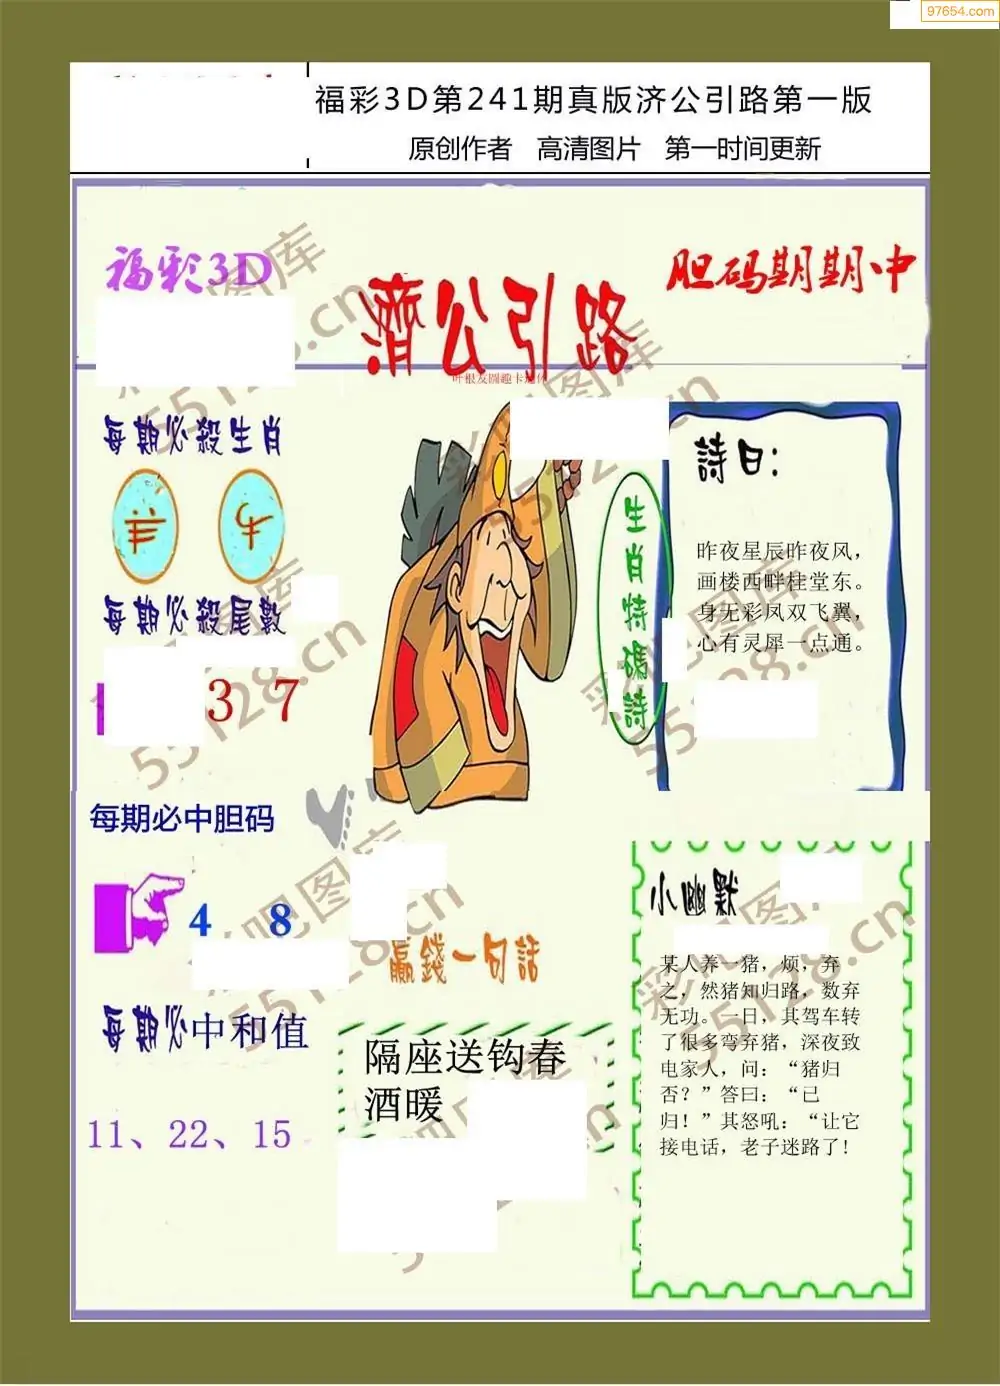 97654.com
福彩3D第241期真版济公引路第一版
原创作者 高清图片 第一时间更新
福彩3D
濟公引路
胆码期期中
每期必殺生肖
羊 牛
每期必殺尾數
3 7
每期必中胆码
4 8
每期必中和值
11、22、15
生肖特碼詩
詩曰:
昨夜星辰昨夜风，
画楼西畔桂堂东。
身无彩凤双飞翼，
心有灵犀一点通。
赢錢一句話
隔座送钩春
酒暖
小幽默
某人养一猪，烦，弃
之，然猪知归路，数弃
无功。一日，其驾车转
了很多弯弃猪，深夜致
电家人，问：“猪归
否？”答曰：“已
归！”其怒吼：“让它
接电话，老子迷路了!
彩吧图库
55128.cn
彩吧图库
55128.cn
彩吧图库
55128.cn
彩吧图库
55128.cn
彩吧图库
55128.cn
彩吧图库
55128.cn